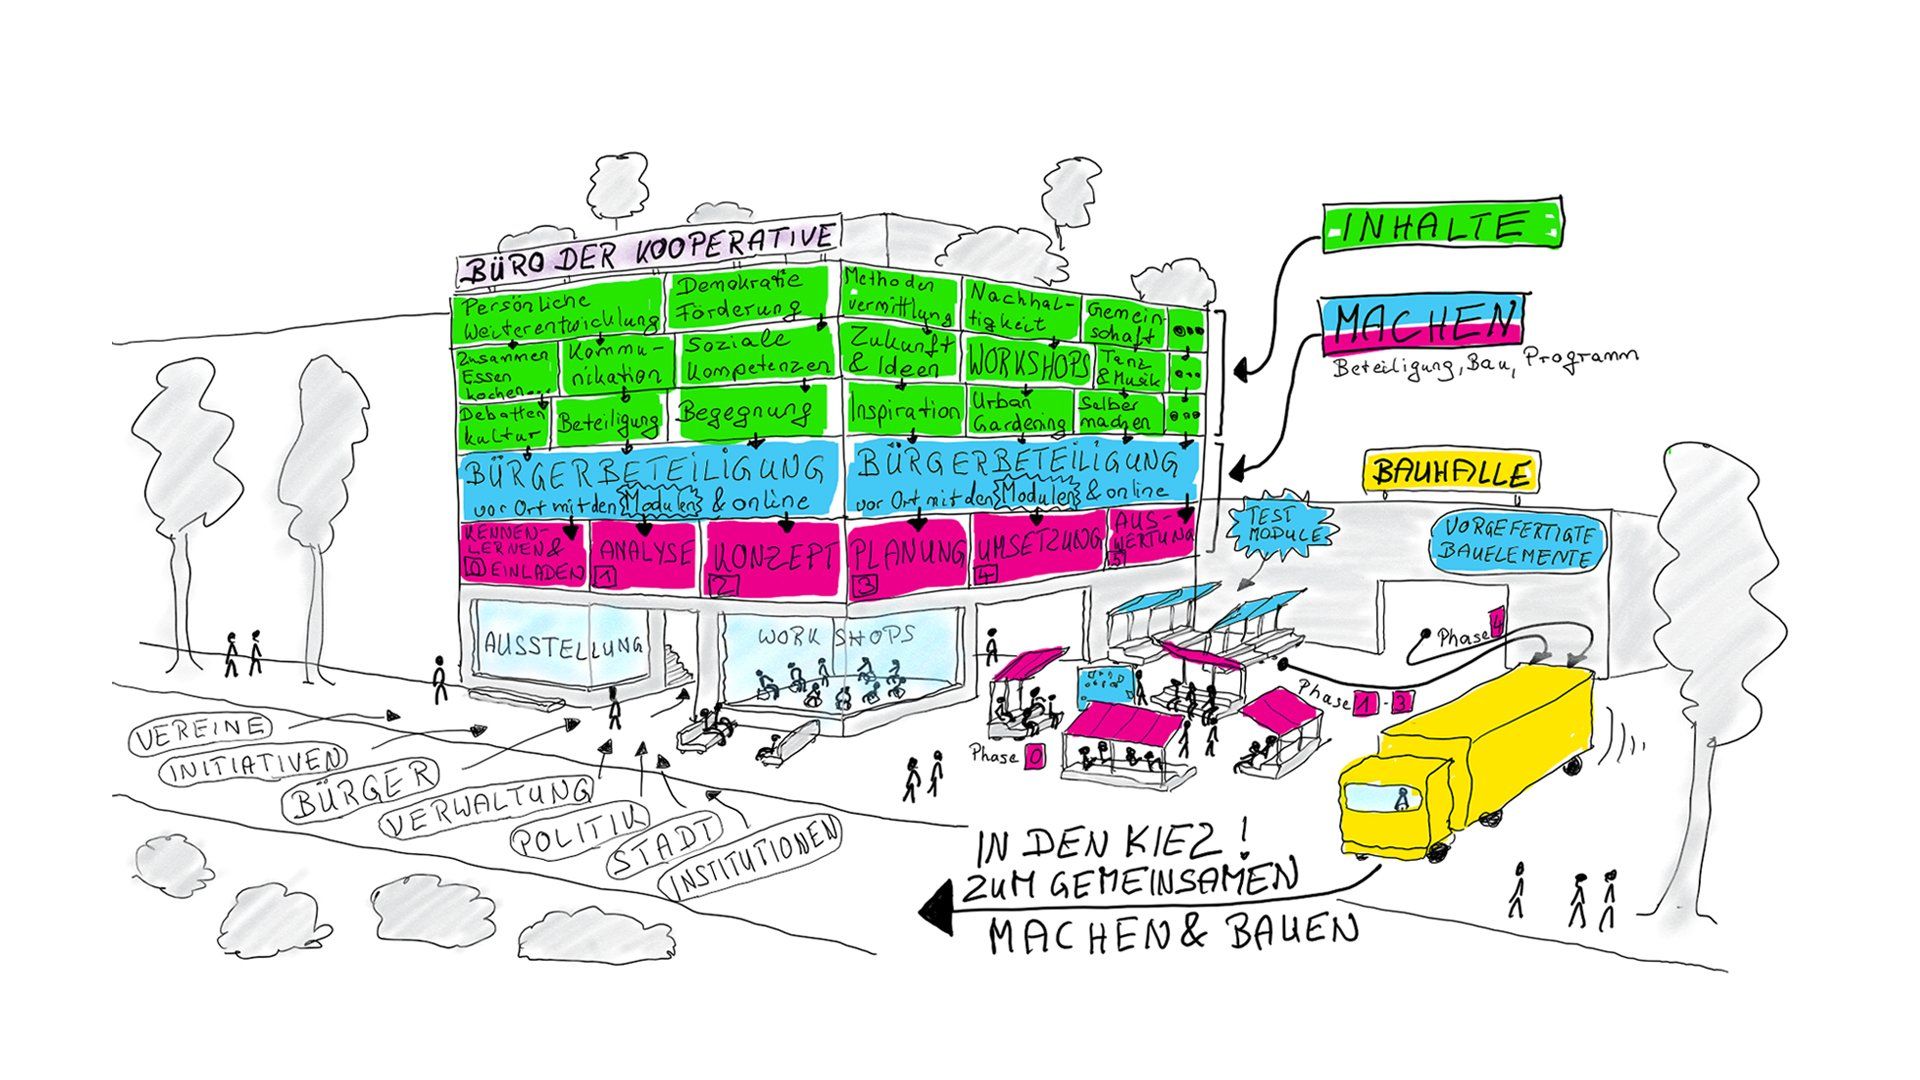 BÜRO DER KOOPERATIVE
Persönliche
Weiterentwicklung
Demokratie
Förderung
Methoden
vermittlung
Nachhal-
tigkeit
Gemein-
schaft
Zusammen
Essen
kochen...
Kommu-
nikation
Soziale
Kompetenzen
Zukunft
& Ideen
WORKSHOPS
Tanz
& Musik
Debatten
kultur
Beteiligung
Begegnung
Inspiration
Urban
Gardening
Selber
machen
BÜRGERBETEILIGUNG
vor Ort mit den Modulen & online
BÜRGERBETEILIGUNG
vor Ort mit den Modulen & online
KENNEN-
LERNEN &
0 EINLADEN
ANALYSE
1
KONZEPT
2
PLANUNG
3
UMSETZUNG
4
AUS-
WERTUNG
5
AUSSTELLUNG
WORKSHOPS
INHALTE
MACHEN
Beteiligung, Bau, Programm
BAUHALLE
TEST
MODULE
VORGEFERTIGTE
BAUELEMENTE
Phase 4
Phase 1-3
Phase 0
VEREINE
INITIATIVEN
BÜRGER
VERWALTUNG
POLITIK
STADT
INSTITUTIONEN
IN DEN KIEZ!
ZUM GEMEINSAMEN
MACHEN & BAUEN